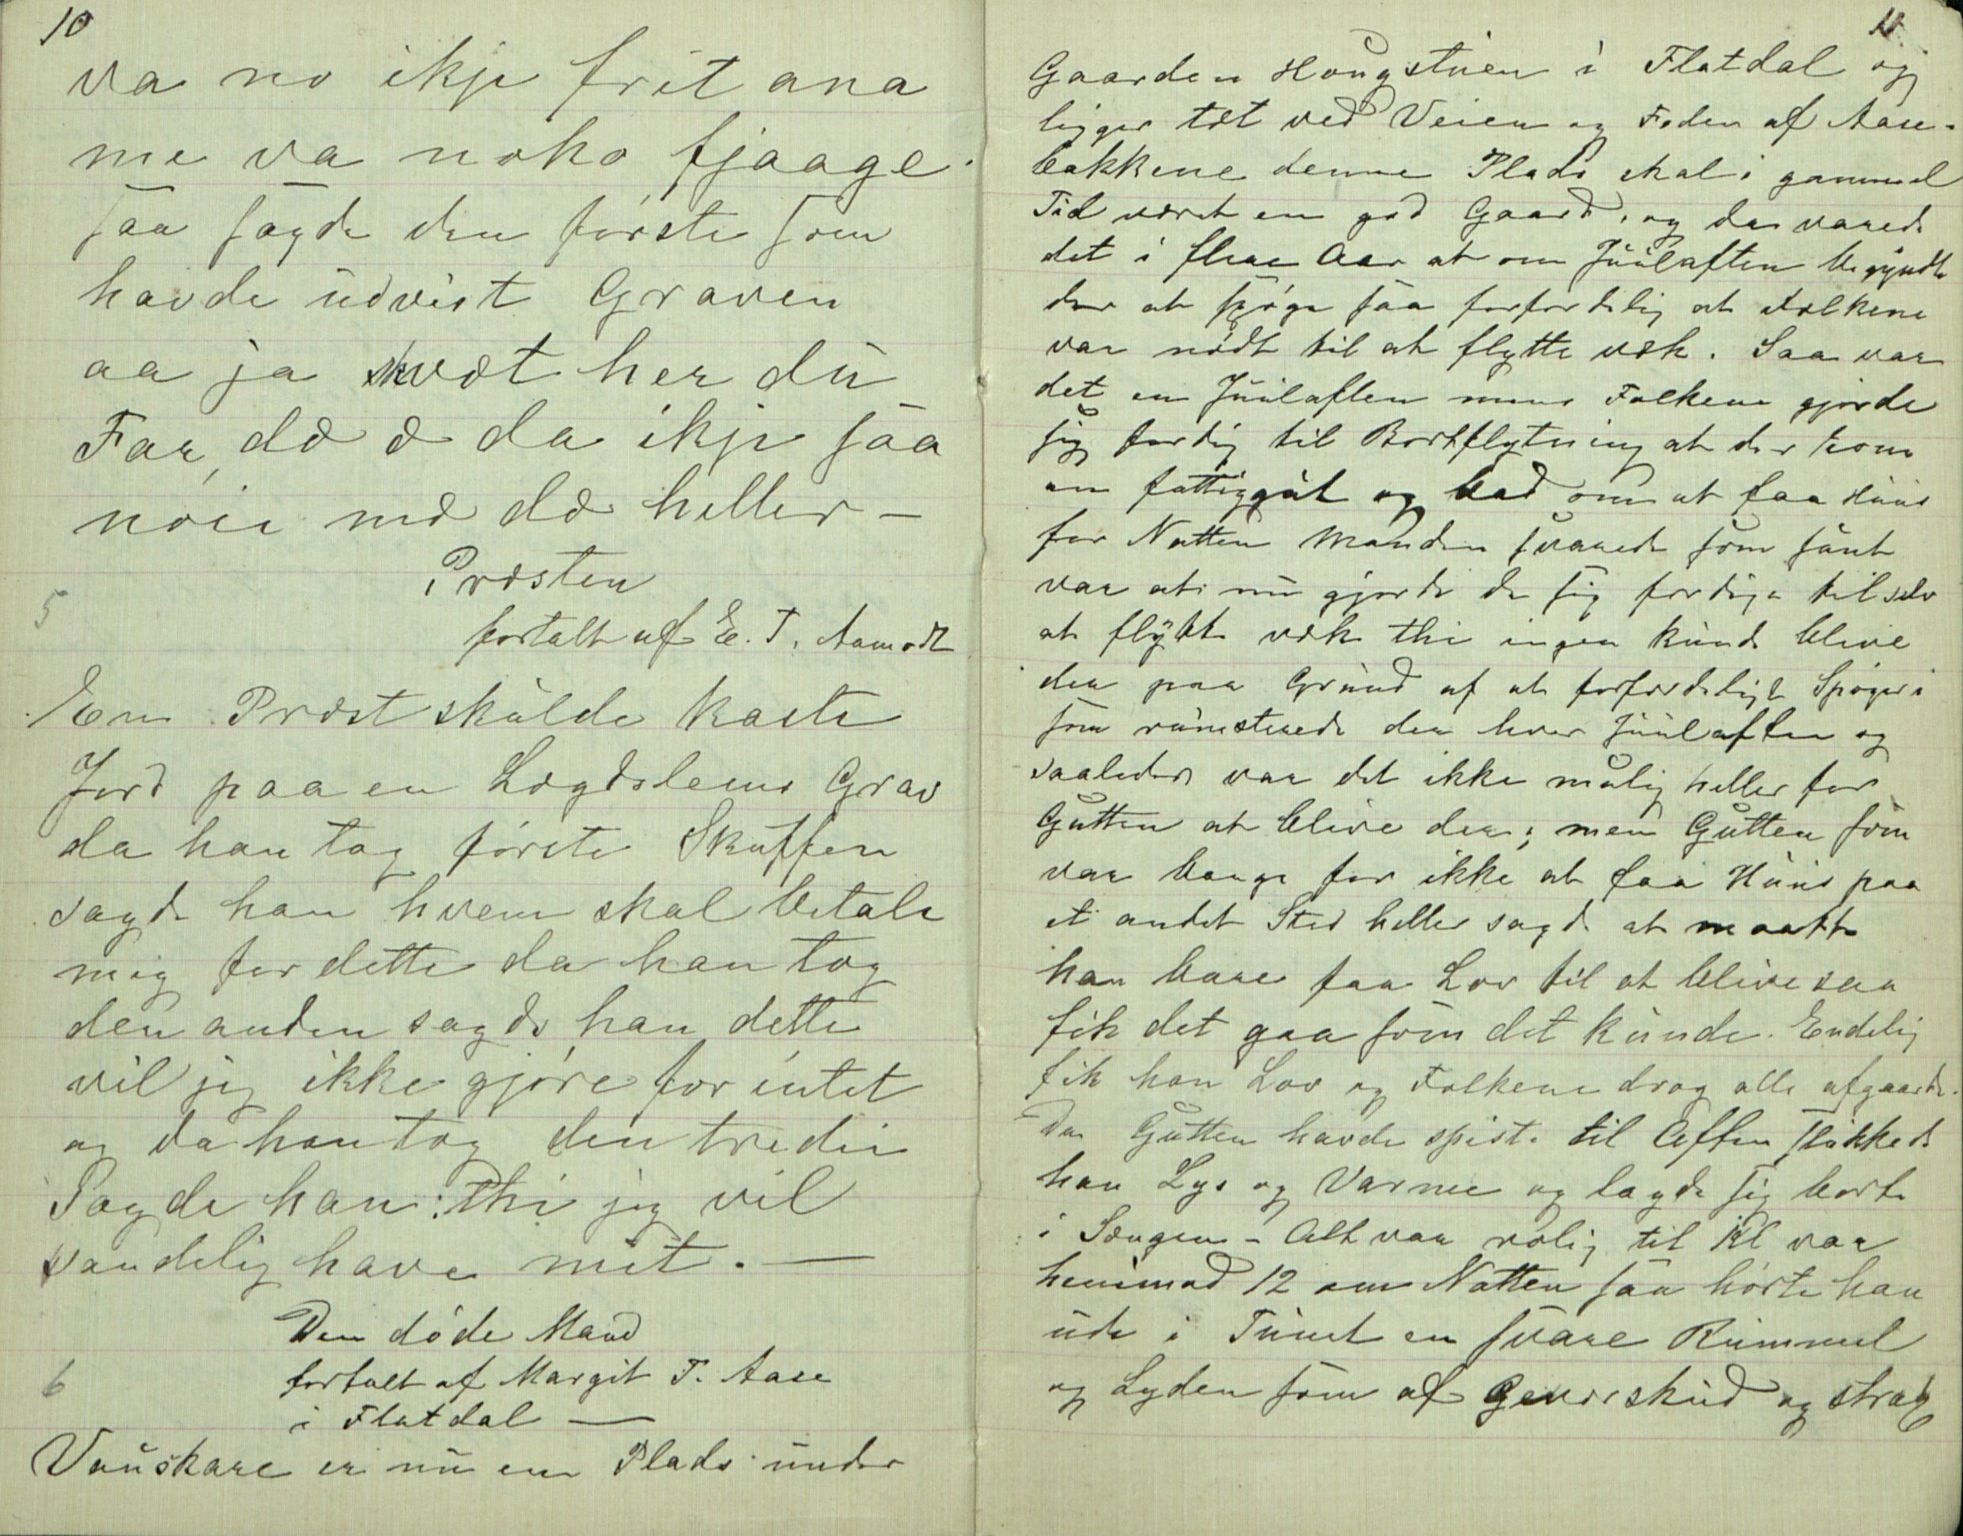 10
va no ikje frit ana
me va noko fjaage.
saa sagde den første som
havde udvist Graven
aa ja kvæt her du
Far, dæ æ da ikje saa
nøie mæ dæ heller —
Præsten
5
fortalt af E. T. Aamodt
En Præst skulde kaste
Jord paa en Lægdslems Grav
da han tog første Skuffen
sagde han hvem skal betale
mig for dette da han tog
den anden sagde han dette
vil jeg ikke gjøre for intet
og da han tog den tredie
Sagde han: thi jeg vil
vandelig have mit. —
Den døde Mand
6
fortalt af Margit T. Aase
i Flatdal —
Vauskare er nu en Plads under
11.
Gaarden Haugstuen i Flatdal og
ligger tæt ved Veien og Foden af Aase-
bakkene denne Plads skal i gammel
Tid været en god Gaard, og da varede
det i flere Aar at om Juulaften begyndte
der at spøge saa forfærdelig at Folkene
var nødt til at flytte væk. Saa var
det en Juulaften mens Folkene gjorde
sig færdig til Bortflytning at der kom
en fattiggut og bad om at faa Huus
for Natten Manden svarede som sant
var at nu gjorde de sig færdige til selv
at flytte væk thi ingen kunde blive
der paa Grund af at forfærdelige Spøgeri
som rumsterede der hver Juulaften og
saaledes var det ikke mulig heller for
Gutten at blive der; men Gutten som
var bange for ikke at faa Huus paa
et andet Sted heller sagde at maatte
han bare faa Lov til at blive saa
fik det gaa som det kunde. Endelig
fik han Lov og Folkene drog alle afgaarde.
Da Gutten havde spist til Aften slukkede
han Lys og Varme og lagde sig bort
i Sængen – Alt var rolig til Kl var
henimod 12 om Natten saa hørte han
ude i Tunet en svare Rummel
og Lyden som af Geværskud og strax